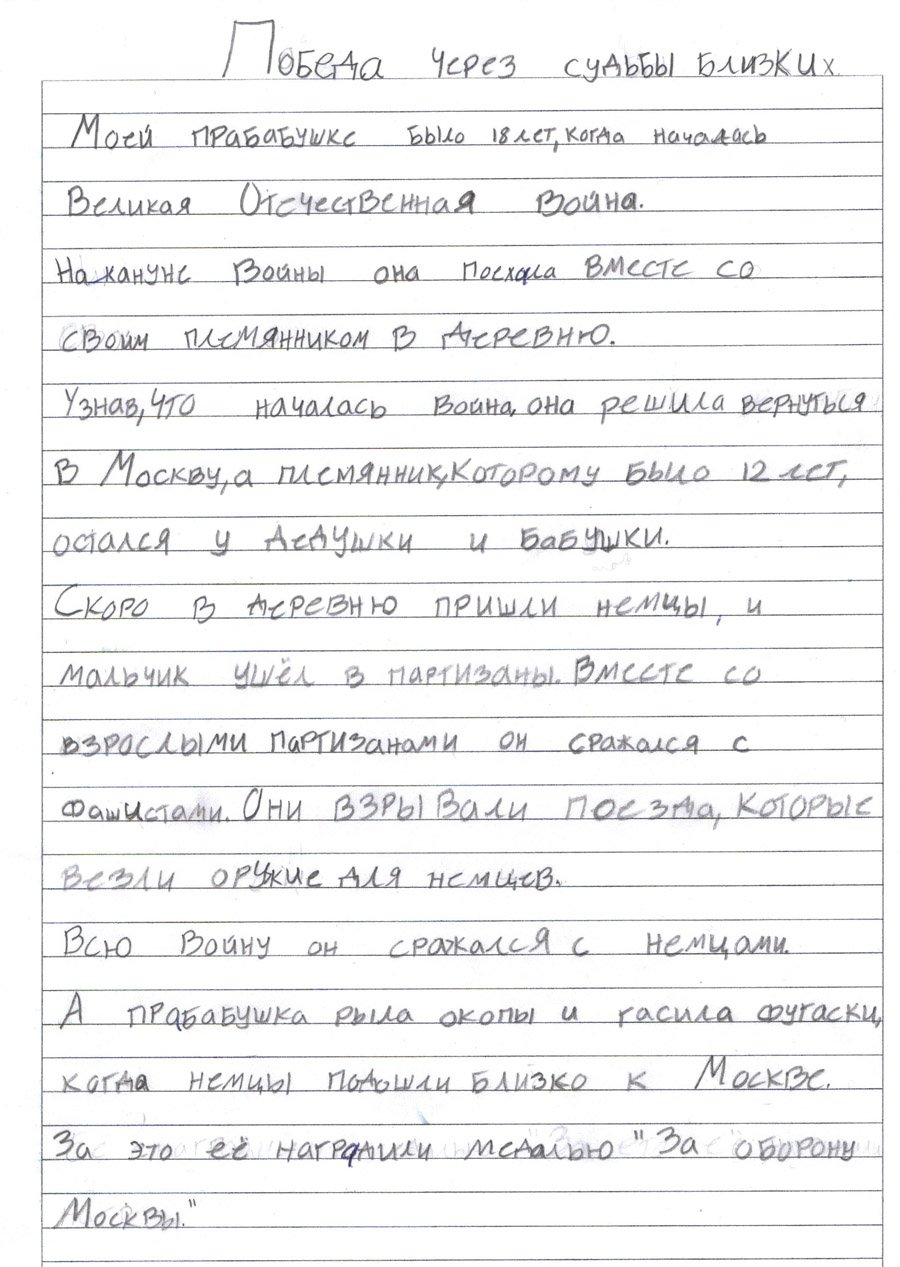 Победа через судьбы близких
Моей прабабушке было 18 лет, когда началась
Великая Отечественная Война.
Накануне Войны она поехала вместе со
своим племянником в деревню.
Узнав, что началась война, она решила вернуться
в Москву, а племянник, которому было 12 лет,
остался у дедушки и бабушки.
Скоро в деревню пришли немцы, и
мальчик ушёл в партизаны. Вместе со
взрослыми партизанами он сражался с
фашистами. Они взрывали поезда, которые
везли оружие для немцев.
Всю Войну он сражался с немцами.
А прабабушка рыла окопы и гасила фугаски,
когда немцы подошли близко к Москве.
За это её наградили медалью "За оборону
Москвы."